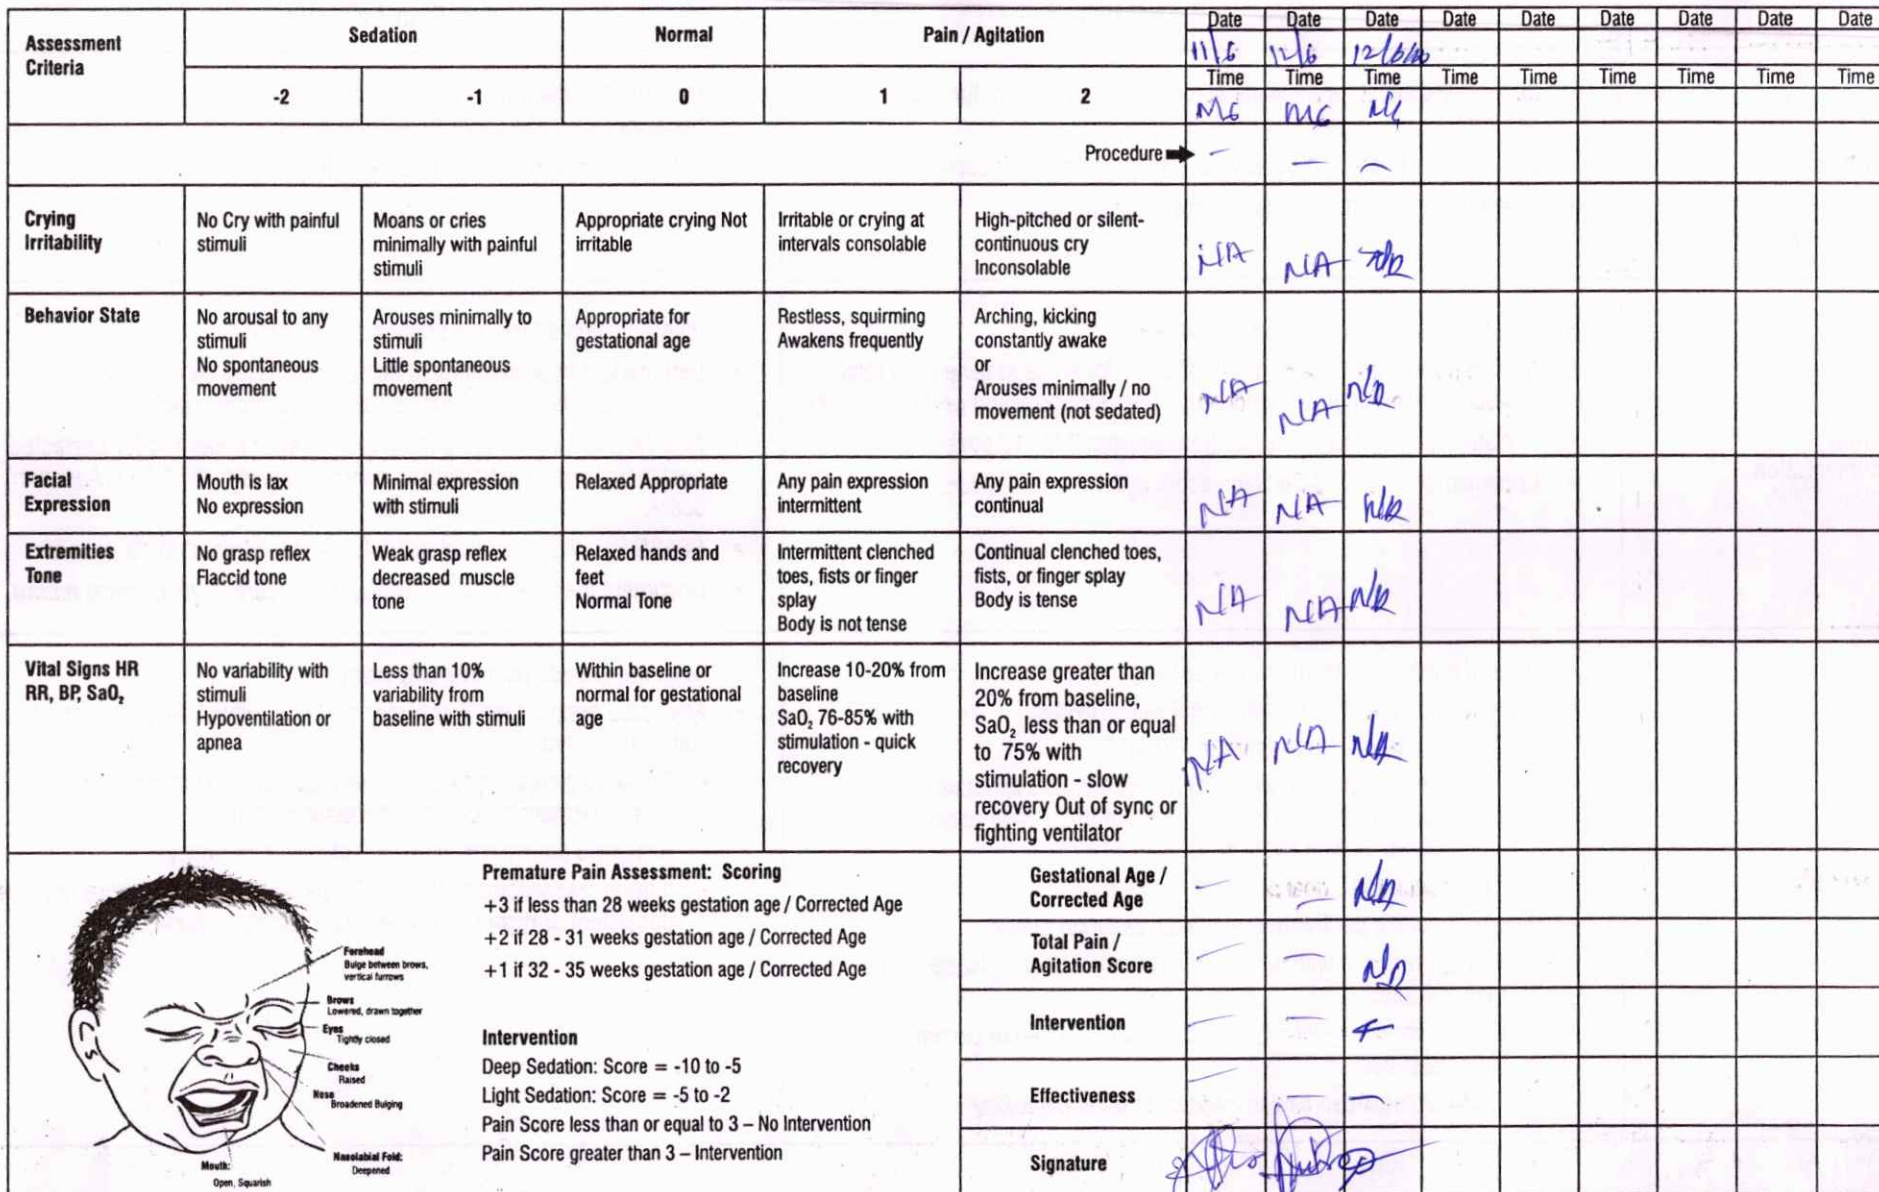 Assessment Criteria
Sedation
Normal
Pain / Agitation
Date Date Date Date Date Date Date Date Date
11/6 12/6
-2 -1 0 1 2
Time Time Time Time Time Time Time Time Time
Procedure
Crying Irritability
No Cry with painful stimuli
Moans or cries minimally with painful stimuli
Appropriate crying Not irritable
Irritable or crying at intervals consolable
High-pitched or silent-continuous cry Inconsolable
NA NA
Behavior State
No arousal to any stimuli
No spontaneous movement
Arouses minimally to stimuli
Little spontaneous movement
Appropriate for gestational age
Restless, squirming
Awakens frequently
Arching, kicking constantly awake
or
Arouses minimally / no movement (not sedated)
NA NA
Facial Expression
Mouth is lax
No expression
Minimal expression with stimuli
Relaxed Appropriate
Any pain expression intermittent
Any pain expression continual
NA NA
Extremities Tone
No grasp reflex
Flaccid tone
Weak grasp reflex decreased muscle tone
Relaxed hands and feet
Normal Tone
Intermittent clenched toes, fists or finger splay
Body is not tense
Continual clenched toes, fists, or finger splay
Body is tense
NA NA
Vital Signs HR RR, BP, SaO₂
No variability with stimuli
Hypoventilation or apnea
Less than 10% variability from baseline with stimuli
Within baseline or normal for gestational age
Increase 10-20% from baseline
SaO₂ 76-85% with stimulation - quick recovery
Increase greater than 20% from baseline, SaO₂ less than or equal to 75% with stimulation - slow recovery Out of sync or fighting ventilator
NA NA
Forehead
Bulge between brows, vertical furrows
Brows
Lowered, drawn together
Eyes
Tightly closed
Cheeks
Raised
Nose
Broadened Bulging
Nasolabial Fold:
Deepened
Mouth:
Open, Squarish
Premature Pain Assessment: Scoring
+3 if less than 28 weeks gestation age / Corrected Age
+2 if 28 - 31 weeks gestation age / Corrected Age
+1 if 32 - 35 weeks gestation age / Corrected Age
Intervention
Deep Sedation: Score = -10 to -5
Light Sedation: Score = -5 to -2
Pain Score less than or equal to 3 – No Intervention
Pain Score greater than 3 – Intervention
Gestational Age / Corrected Age
Total Pain / Agitation Score
Intervention
Effectiveness
Signature